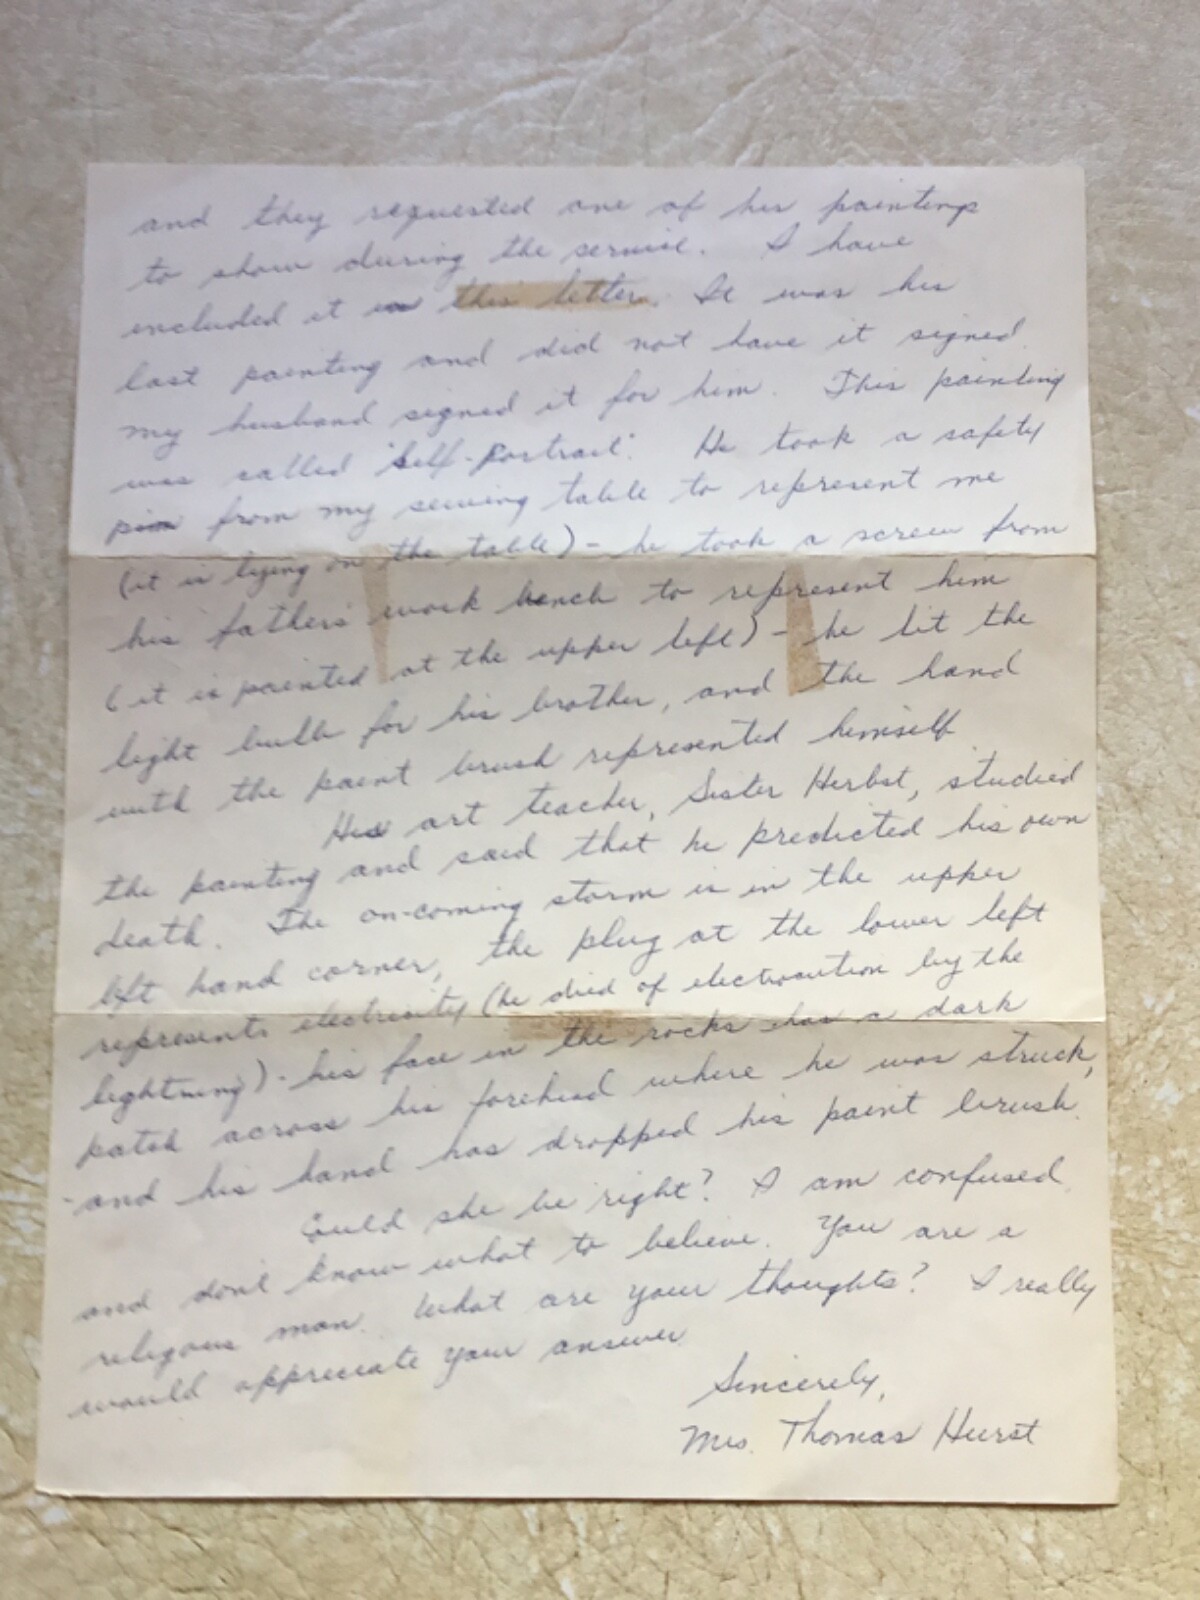 and they requested one of his paintings
to show during the service. I have
included it in this letter. It was his
last painting and did not have it signed.
my husband signed it for him. This painting
was called "Self-Portrait". He took a safety
pin from my sewing table to represent me
(it is lying on the table) - he took a screw from
his father's work bench to represent him
(it is painted at the upper left) - he lit the
light bulb for his brother, and the hand
with the paint brush represented himself
His art teacher, Sister Herbst, studied
the painting and said that he predicted his own
death. The on-coming storm is in the upper
left hand corner, the plug at the lower left
represents electricity (he died of electrocution by the
lightning) - his face in the rocks has a dark
patch across his forehead where he was struck,
-and his hand has dropped his paint brush.
Could she be right? I am confused
and don't know what to believe. You are a
religous man. What are your thoughts? I really
would appreciate your answer.
Sincerely,
Mrs. Thomas Hurst